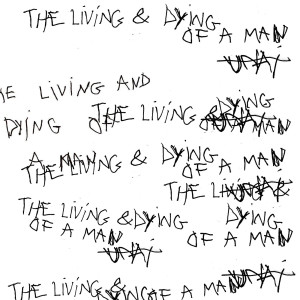 THE LIVING & DYING
OF A MAN
THE LIVING AND
THE LIVING & DYING
DYING OF
OF A MAN
A MAN & DYING
THE LIVING OF A MAN
THE LIVING &
THE LIVING & DYING DYING
OF A MAN OF A MAN
THE LIVING & DYING OF A MAN